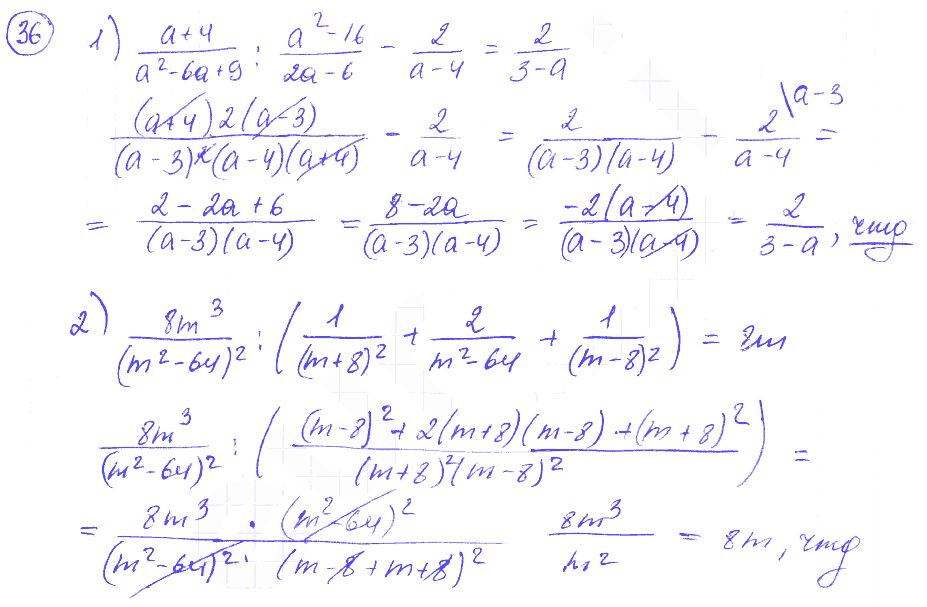 36 1) \frac{a+4}{a^2-6a+9} : \frac{a^2-16}{2a-6} - \frac{2}{a-4} = \frac{2}{3-a}
\frac{(a+4)2(a-3)}{(a-3)^2(a-4)(a+4)} - \frac{2}{a-4} = \frac{2}{(a-3)(a-4)} - \frac{2}{a-4} \a-3 =
= \frac{2-2a+6}{(a-3)(a-4)} = \frac{8-2a}{(a-3)(a-4)} = \frac{-2(a-4)}{(a-3)(a-4)} = \frac{2}{3-a}, чтд
2) \frac{8m^3}{(m^2-64)^2} : ( \frac{1}{(m+8)^2} + \frac{2}{m^2-64} + \frac{1}{(m-8)^2} ) = 8m
\frac{8m^3}{(m^2-64)^2} : ( \frac{(m-8)^2+2(m+8)(m-8)+(m+8)^2}{(m+8)^2(m-8)^2} ) =
= \frac{8m^3 · (m^2-64)^2}{(m^2-64)^2 · (m-8+m+8)^2} \frac{8m^3}{m^2} = 8m, чтд